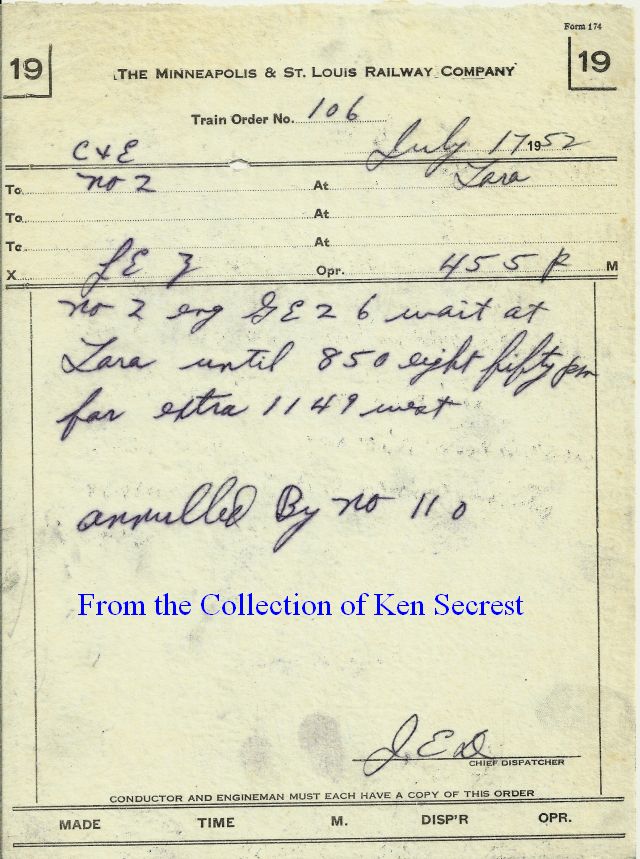 Form 174
19 THE MINNEAPOLIS & ST. LOUIS RAILWAY COMPANY 19
Train Order No. 106
July 17 1952
C & E
To No 2 At Tara
To At
To At
X Opr. 455 P M
no 2 eng GE 26 wait at
Tara until 850 eight fifty pm
for extra 1149 west
annulled By no 110
From the Collection of Ken Secrest
J.E.D.
CHIEF DISPATCHER
CONDUCTOR AND ENGINEMAN MUST EACH HAVE A COPY OF THIS ORDER
MADE TIME M. DISP'R OPR.